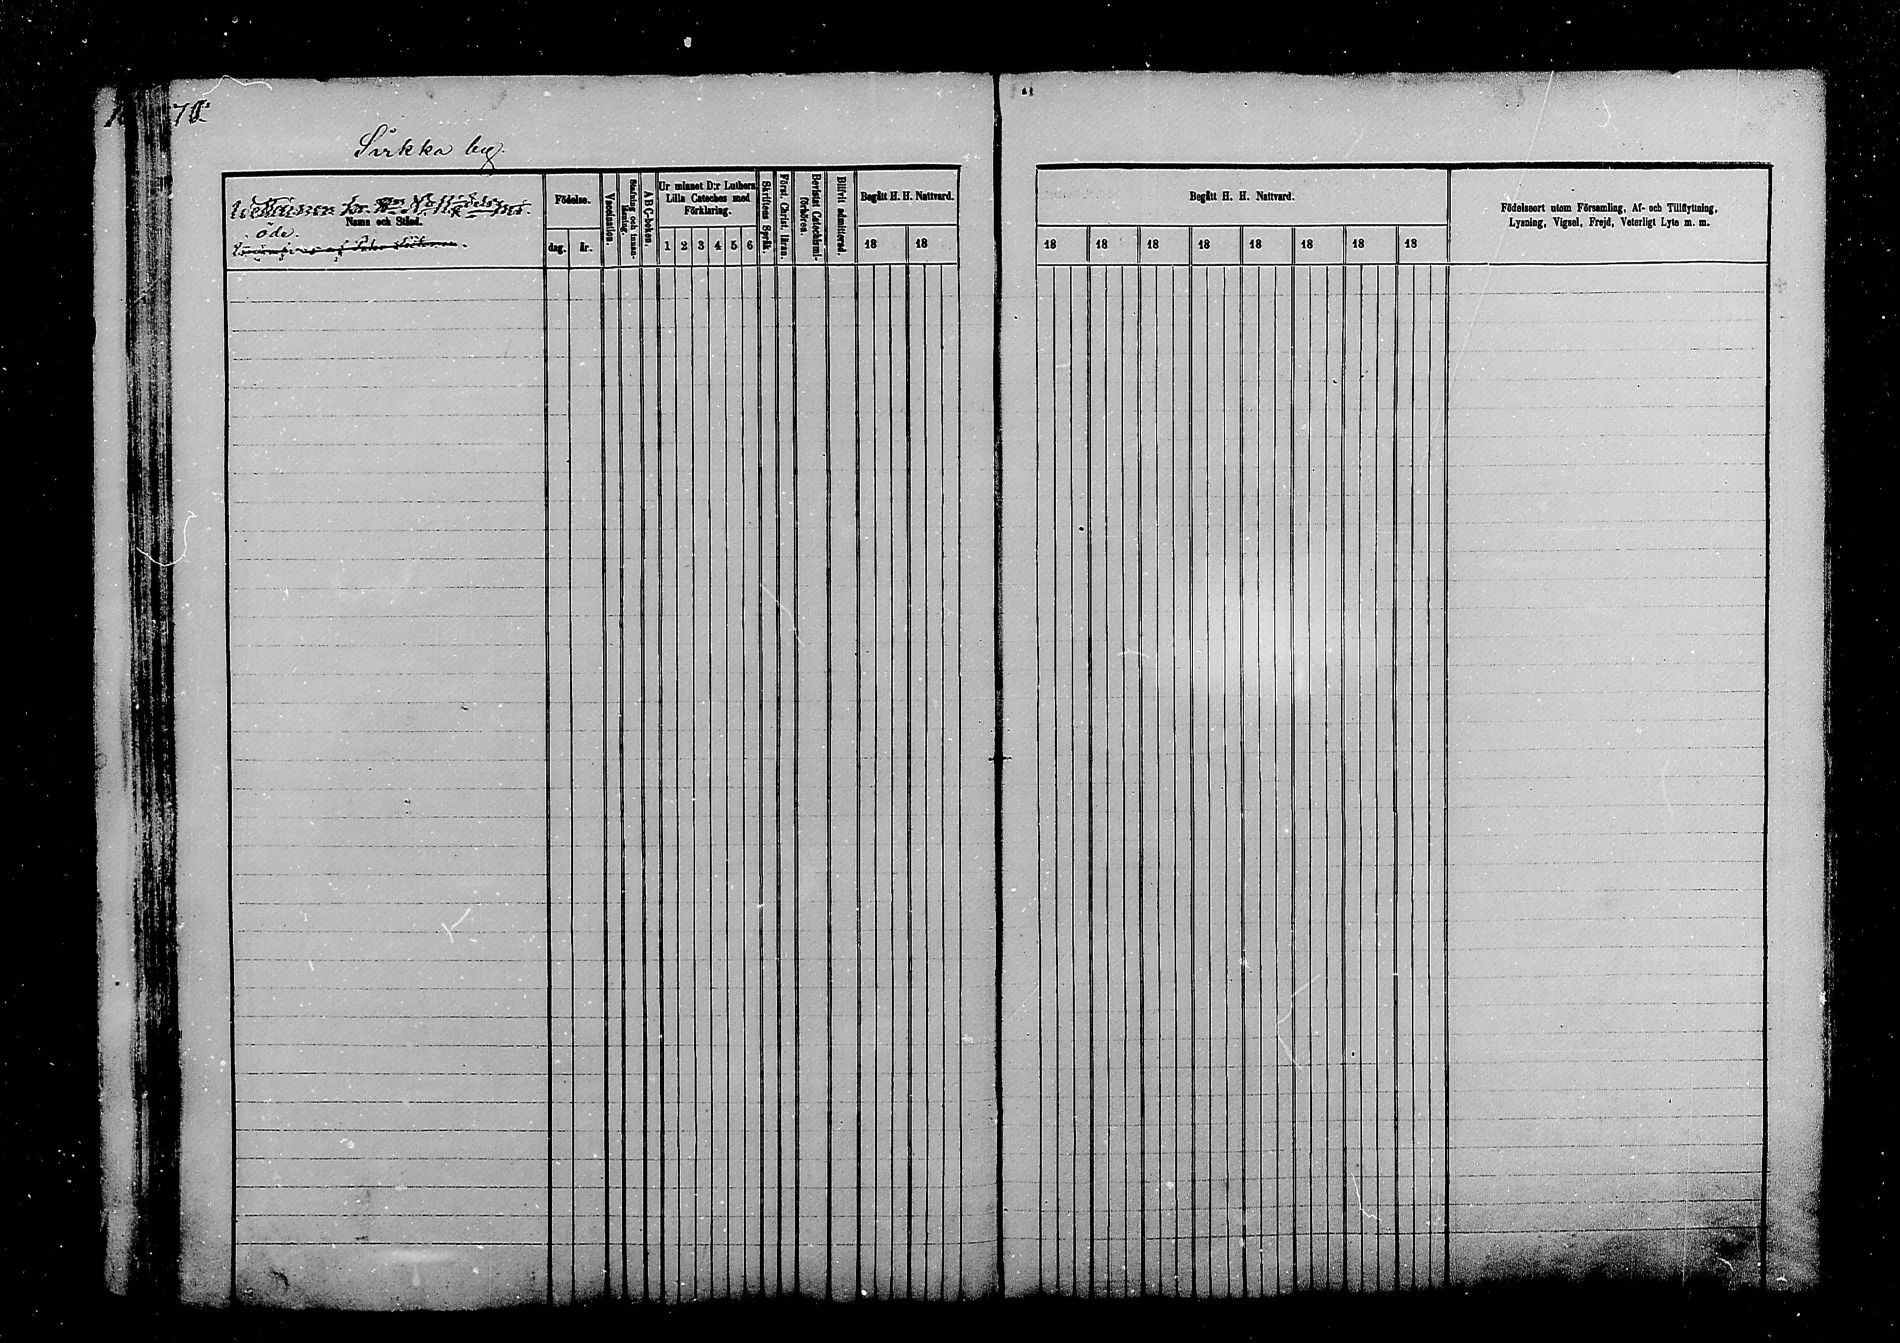 70.
Sirkka by.
Namn och Stånd.
öde.
Födelse.
dag.
år.
Vaccination.
Stafning och innan-
läsning
A B C-boken.
Ur minnet D:r Luthers
Lilla Cateches med
Förklaring.
1 2 3 4 5 6
Skriftens Språk.
Först. Christ. läran.
Bevistat Catechismi-
förhören.
Blifvit admitterad.
Begått H. H. Nattvard.
18 18
Begått H. H. Nattvard.
18 18 18 18 18 18 18 18
Födelseort utom Församling, Af- och Tillflyttning,
Lysning, Vigsel, Frejd, Veterligt Lyte m. m.